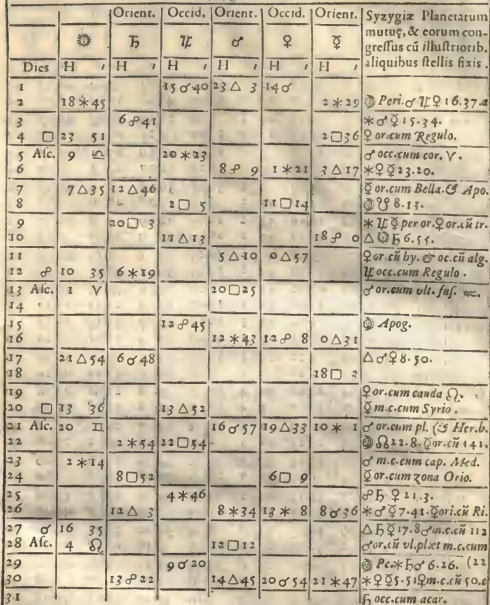 Orient. Occid. Orient. Occid. Orient. Syzygiæ Planetarum
mutuę, & eorum con-
☉ ♄ ♃ ♂ ♀ ☿ gressus cũ illustriorib.
aliquibus stellis fixis.
Dies H ′ H ′ H ′ H ′ H ′ H ′
1 15 ☌ 40 23 △ 3 14 ☌
2 18 ✶ 45 2 ✶ 29 Peri. ☌ ♃ ♀ 16.37.
3 6 ☍ 41 ✶ ♂ ☿ 15.34.
4 □ 23 51 2 □ 36 ♀ or.cum Regulo.
5 Asc. 9 ♎ 20 ✶ 23 ♂ occ.cum cor. ♈.
6 8 ☍ 9 1 ✶ 21 3 △ 17 ✶ ♀ ☿ 23.20.
7 7 △ 35 12 △ 46 ☿ or.cum Bella. & Apo.
8 2 □ 5 11 □ 14 ☋ 8.13.
9 20 □ 3 ✶ ♃ ☿ per or. ♀ or.cũ tr.
10 11 △ 13 18 ☍ 0 △ ☉ ♄ 6.55.
11 5 △ 10 0 △ 57 ♀ or.cũ hy. & oc.cũ alg.
12 ☍ 10 35 6 ✶ 19 ♃ occ.cum Regulo.
13 Asc. 1 ♈ 20 □ 25 ♂ or.cum vlt. fus. ♒.
14
15 12 ☍ 45 Apog.
16 12 ✶ 43 12 ☍ 8 0 △ 31
17 21 △ 54 6 ☌ 48 △ ♂ ♀ 8.50.
18 18 □ 3
19 ♀ or.cum cauda ♌.
20 □ 13 36 13 △ 52 ☿ m.c.cum Syrio.
21 Asc. 20 ♊ 16 ☌ 57 19 △ 33 10 ✶ 1 ♂ or.cum pl. (& Her.b.
22 2 ✶ 54 22 □ 54 ☊ 22.8. ☿ or.cũ 141.
23 2 ✶ 14 ♂ m.c.cum cap. Med.
24 8 □ 52 6 □ 9 ☿ or.cum zona Orio.
25 4 ✶ 46 ☍ ♄ ♀ 21.3.
26 12 △ 3 8 ✶ 34 13 ✶ 8 8 ☌ 36 ✶ ♂ ☿ 7.41. ☿ ori.cũ Ri.
27 ☌ 16 35 △ ♄ ☿ 17.8 ♂ m.c.cũ 112
28 Asc. 4 ♌ 12 □ 12 ♂ or.cũ vl.pl.et m.c.cum
29 9 ☌ 20 Pe. ✶ ♄ ♂ 6.26. (22
30 13 ☍ 22 14 △ 45 20 ☌ 54 21 ✶ 47 ✶ ♀ ☿ 5.51 ♀ m.c.cũ 50.
31 ♄ occ.cum acar.